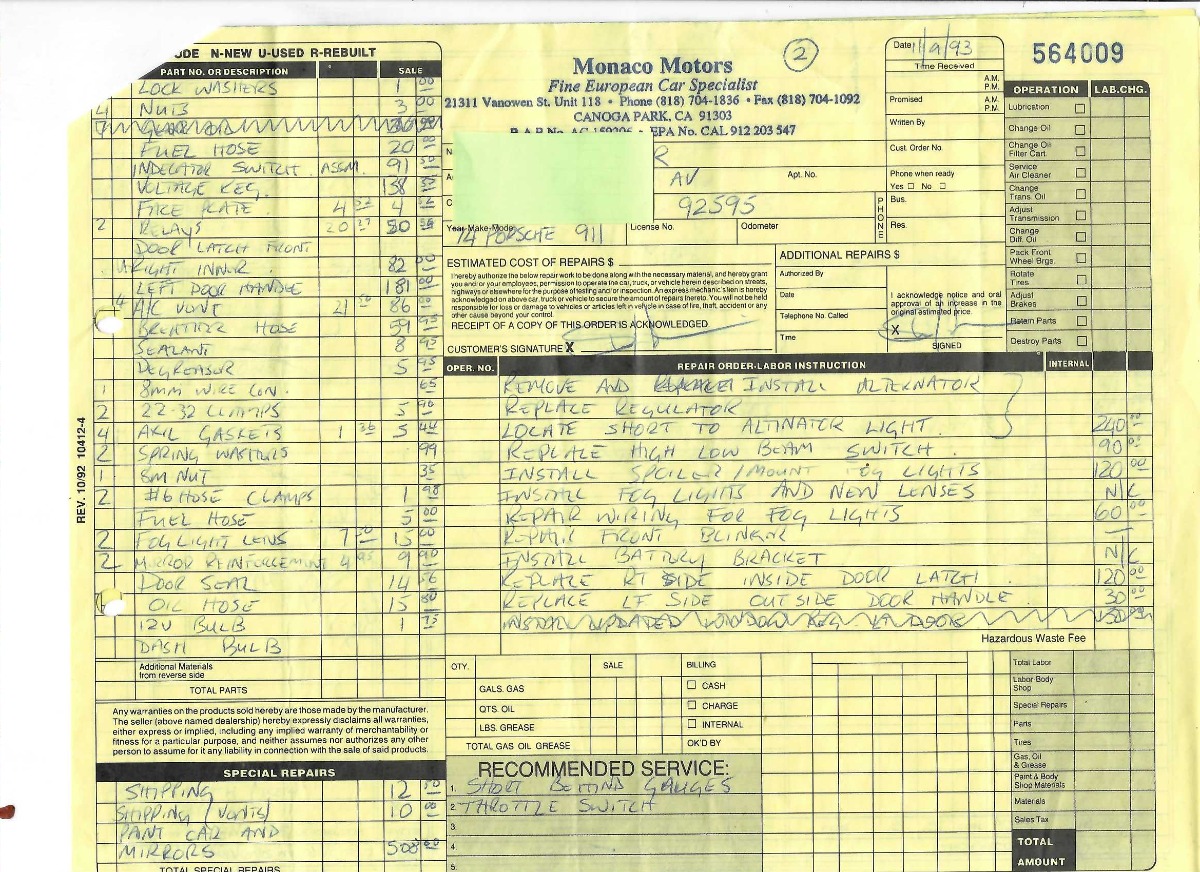 ODE N-NEW U-USED R-REBUILT
PART NO. OR DESCRIPTION SALE
LOCK WASHERS 1 00
4 NUTS 3 00
FUEL HOSE 20 00
INDECATOR SWITCH ASSM. 91 50
VOLTAGE REG. 138
FACE PLATE 4 4
2 RELAYS 20 27 50
DOOR LATCH FRONT
RIGHT INNER 82 00
LEFT DOOR HANDLE 181 00
4 A/C VENT 21 50 86 00
BREATHER HOSE 59 95
SEALANT 8 95
DEGREASER 5 95
1 8MM WIRE CON. 65
2 22-32 CLAMPS 5 90
4 AXIL GASKETS 1 36 5 44
2 SPRING WASHERS 99
1 8M NUT 35
2 #6 HOSE CLAMPS 1 98
FUEL HOSE 5 00
2 FOG LIGHT LENS 7 50 15 00
2 MIRROR REINFORCEMENT 4 95 9 90
DOOR SEAL 14 56
OIL HOSE 15 80
12V BULB 1 75
DASH BULB
Additional Materials
from reverse side
TOTAL PARTS
Any warranties on the products sold hereby are those made by the manufacturer.
The seller (above named dealership) hereby expressly disclaims all warranties,
either express or implied, including any implied warranty of merchantability or
fitness for a particular purpose, and neither assumes nor authorizes any other
person to assume for it any liability in connection with the sale of said products.
SPECIAL REPAIRS
SHIPPING 12 50
SHIPPING (VENTS) 10 00
PANT CAR AND
MIRRORS 500 00
TOTAL SPECIAL REPAIRS
REV. 10/92 10412-4
2
Monaco Motors
Fine European Car Specialist
21311 Vanowen St. Unit 118 • Phone (818) 704-1836 • Fax (818) 704-1092
CANOGA PARK, CA 91303
B.A.R No. AC 159206 • EPA No. CAL 912 203 547
N R
A AV Apt. No.
C 92595
Year-Make-Model License No. Odometer
74 PORSCHE 911
Date 11/9/93
Time Received
A.M.
P.M.
Promised A.M.
P.M.
Written By
Cust. Order No.
Phone when ready
Yes No
PHONE
Bus.
Res.
564009
ESTIMATED COST OF REPAIRS $
I hereby authorize the below repair work to be done along with the necessary material, and hereby grant
you and/or your employees, permission to operate the car, truck, or vehicle herein described on streets,
highways or elsewhere for the purpose of testing and/or inspection. An express mechanic's lien is hereby
acknowledged on above car, truck or vehicle to secure the amount of repairs thereto. You will not be held
responsible for loss or damage to vehicles or articles left in vehicle in case of fire, theft, accident or any
other cause beyond your control.
RECEIPT OF A COPY OF THIS ORDER IS ACKNOWLEDGED
CUSTOMER'S SIGNATURE X
ADDITIONAL REPAIRS $
Authorized By
Date
Telephone No. Called
Time
I acknowledge notice and oral
approval of an increase in the
original estimated price.
X
SIGNED
OPERATION LAB.CHG.
Lubrication
Change Oil
Change Oil
Filter Cart.
Service
Air Cleaner
Change
Trans. Oil
Adjust
Transmission
Change
Diff. Oil
Pack Front
Wheel Brgs.
Rotate
Tires
Adjust
Brakes
Retain Parts
Destroy Parts
OPER. NO. REPAIR ORDER-LABOR INSTRUCTION INTERNAL
REMOVE AND INSTALL ALTERNATOR
REPLACE REGULATOR
LOCATE SHORT TO ALTINATOR LIGHT. 240 00
REPLACE HIGH LOW BEAM SWITCH. 90 00
INSTALL SPOILER/MOUNT FOG LIGHTS 120 00
INSTALL FOG LIGHTS AND NEW LENSES N/C
REPAIR WIRING FOR FOG LIGHTS 60 00
REPAIR FRONT BLINGER —
INSTALL BATTERY BRACKET N/C
REPLACE RT SIDE INSIDE DOOR LATCH. 120 00
REPLACE LF SIDE OUTSIDE DOOR HANDLE. 30 00
INSTALL UPDATED WINDOW REG DOOR
Hazardous Waste Fee
QTY. SALE BILLING
GALS. GAS CASH
QTS. OIL CHARGE
LBS. GREASE INTERNAL
TOTAL GAS OIL GREASE OK'D BY
RECOMMENDED SERVICE:
1. SHORT BEHIND GAUGES
2. THROTTLE SWITCH
3.
4.
5.
Total Labor
Labor-Body
Shop
Special Repairs
Parts
Tires
Gas, Oil
& Grease
Paint & Body
Shop Materials
Materials
Sales Tax
TOTAL
AMOUNT